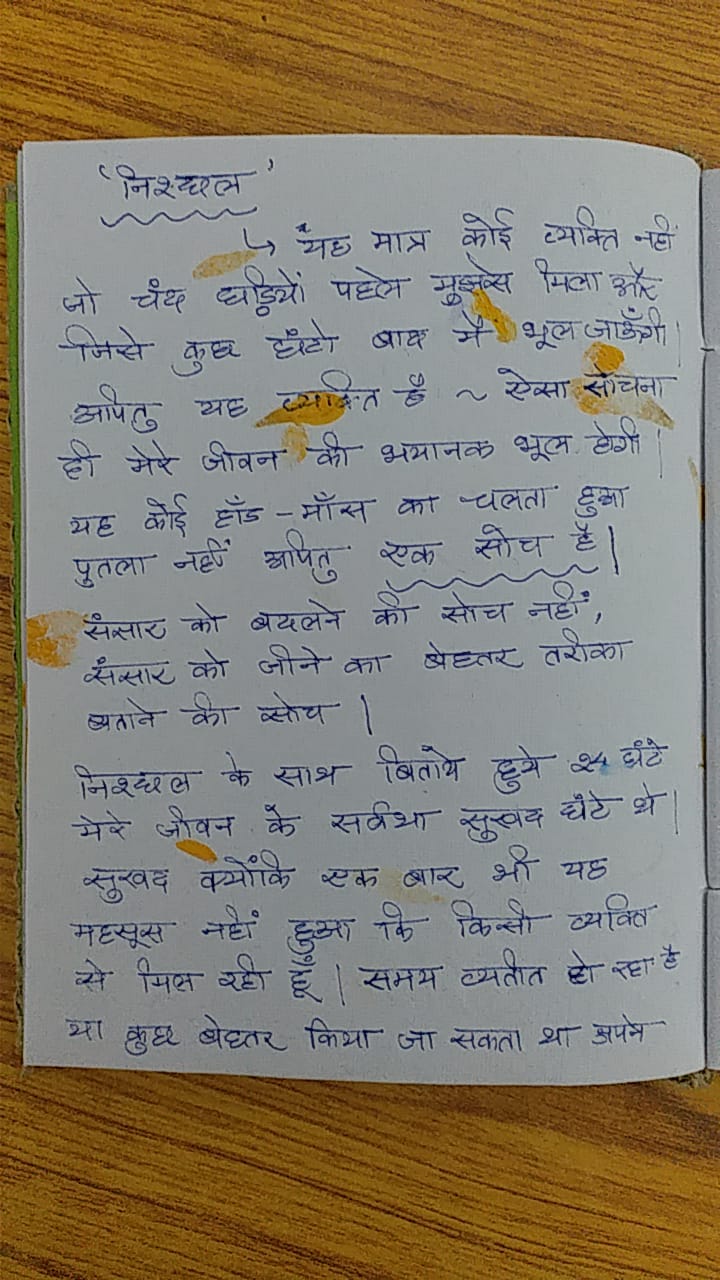 'निश्छल'
↳ यह मात्र कोई व्यक्ति नहीं
जो चंद घड़ियों पहले मुझसे मिला और
जिसे कुछ घंटो बाद मैं भूल जाऊँगी|
अपितु यह व्यक्ति है ~ ऐसा सोचना
ही मेरे जीवन की भयानक भूल होगी|
यह कोई हाँड - माँस का चलता हुआ
पुतला नहीं अपितु एक सोच है|
संसार को बदलने की सोच नहीं,
संसार को जीने का बेहतर तरीका
बताने की सोच |
निश्छल के साथ बिताये हुये 24 घंटे
मेरे जीवन के सर्वथा सुखद घंटे थे|
सुखद क्योंकि एक बार भी यह
महसूस नहीं हुआ कि किसी व्यक्ति
से मिल रही हूँ| समय व्यतीत हो रहा है
या कुछ बेहतर किया जा सकता था अपने